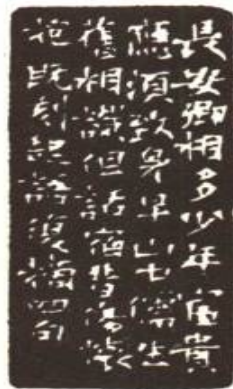 長安卿相多少年富貴
應須致身早山中儒生
舊相識但話宿昔傷懷
抱既刻起語復摘四句